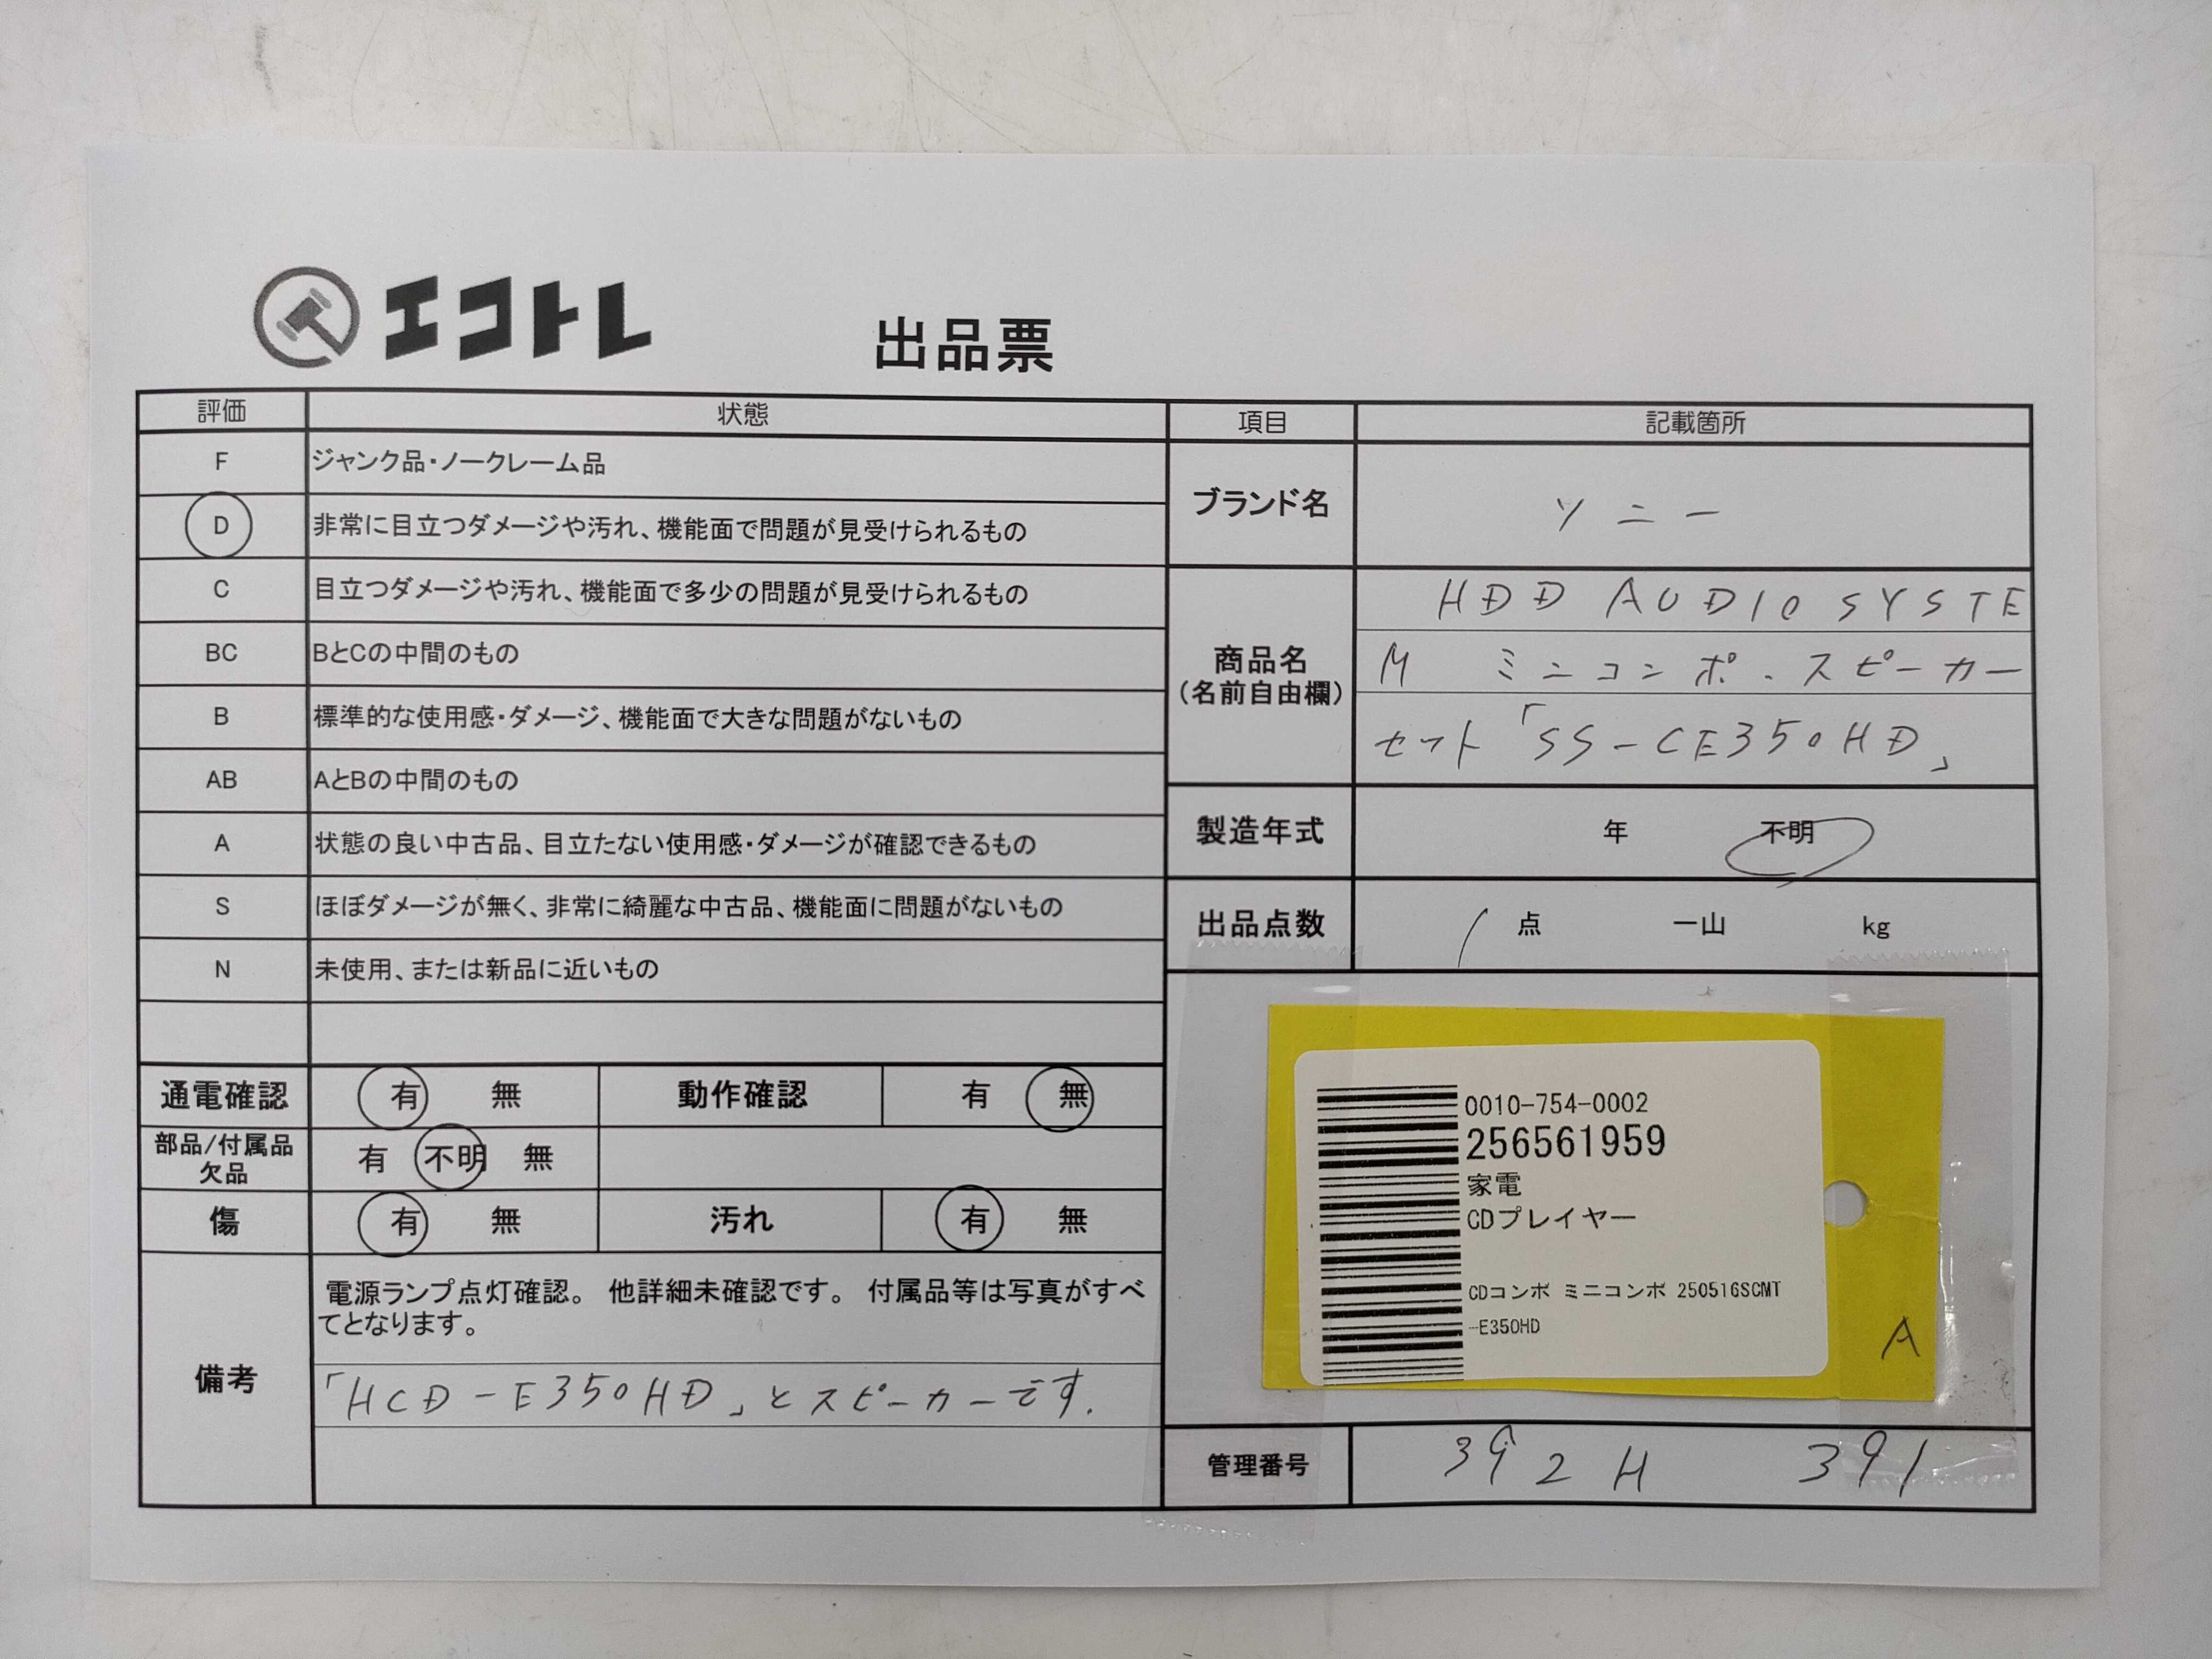 エコトレ
出品票
評価 状態
F ジャンク品・ノークレーム品
D 非常に目立つダメージや汚れ、機能面で問題が見受けられるもの
C 目立つダメージや汚れ、機能面で多少の問題が見受けられるもの
BC BとCの中間のもの
B 標準的な使用感・ダメージ、機能面で大きな問題がないもの
AB AとBの中間のもの
A 状態の良い中古品、目立たない使用感・ダメージが確認できるもの
S ほぼダメージが無く、非常に綺麗な中古品、機能面に問題がないもの
N 未使用、または新品に近いもの
通電確認 有 無 動作確認 有 無
部品/付属品
欠品
有 不明 無
傷 有 無 汚れ 有 無
備考
電源ランプ点灯確認。 他詳細未確認です。 付属品等は写真がすべ
てとなります。
「HCD-E350HD」とスピーカーです.
項目 記載箇所
ブランド名 ソニー
商品名
(名前自由欄)
HDD AUDIO SYSTE
M ミニコンポ.スピーカー
セット「SS-CE350HD」
製造年式 年 不明
出品点数 1 点 一山 kg
0010-754-0002
256561959
家電
CDプレイヤー
CDコンポ ミニコンポ 250516SCMT
-E350HD
A
管理番号 392H 391